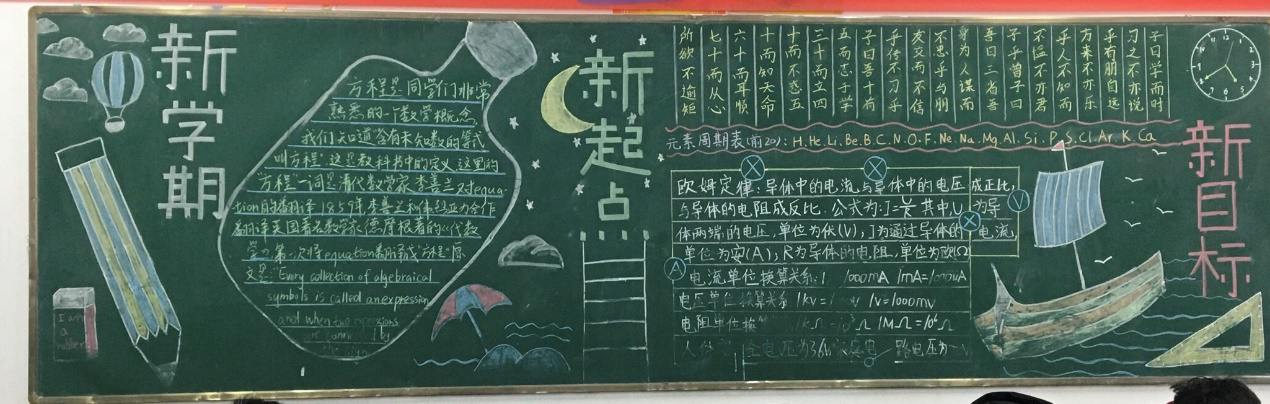 新学期
方程是同学们非常
熟悉的一个数学概念
我们知道含有未知数的等式
叫方程"这是教科书中的定义 这里的
"方程"一词是清代数学家 李善兰对equa-
tion的翻译 1859年 李善兰和伟烈亚力合作
翻译英国著名数学家德摩根著的《代数
学》第一次将equation翻译成"方程"原
文是:"Every collection of algebraical
symbols is called an expression
and when two expressions
I am
a
rubber
新起点
子曰学而时
习之不亦说
乎有朋自远
方来不亦乐
乎人不知而
不愠不亦君
子乎曾子曰
吾日三省吾
身为人谋而
不忠乎与朋
友交而不信
乎传不习乎
子曰吾十有
五而志于学
三十而立四
十而不惑五
十而知天命
六十而耳顺
七十而从心
所欲不逾矩
元素周期表(前20):H.He.Li.Be.B.C.N.O.F.Ne.Na.Mg.Al.Si.P.S.Cl.Ar.K.Ca
欧姆定律:导体中的电流与导体中的电压成正比,
与导体的电阻成反比.公式为:I=U/R 其中,U为导
体两端的电压,单位为伏(V),I为通过导体的电流,
单位为安(A),R为导体的电阻,单位为欧(Ω)
电流单位换算关系:1 1000mA 1mA=1000uA
电压单位换算关系 1kv= 1v=1000mv
电阻单位换 1kΩ=10³Ω 1MΩ=10⁶Ω
全电压为36v 路电压为
A
V
新目标